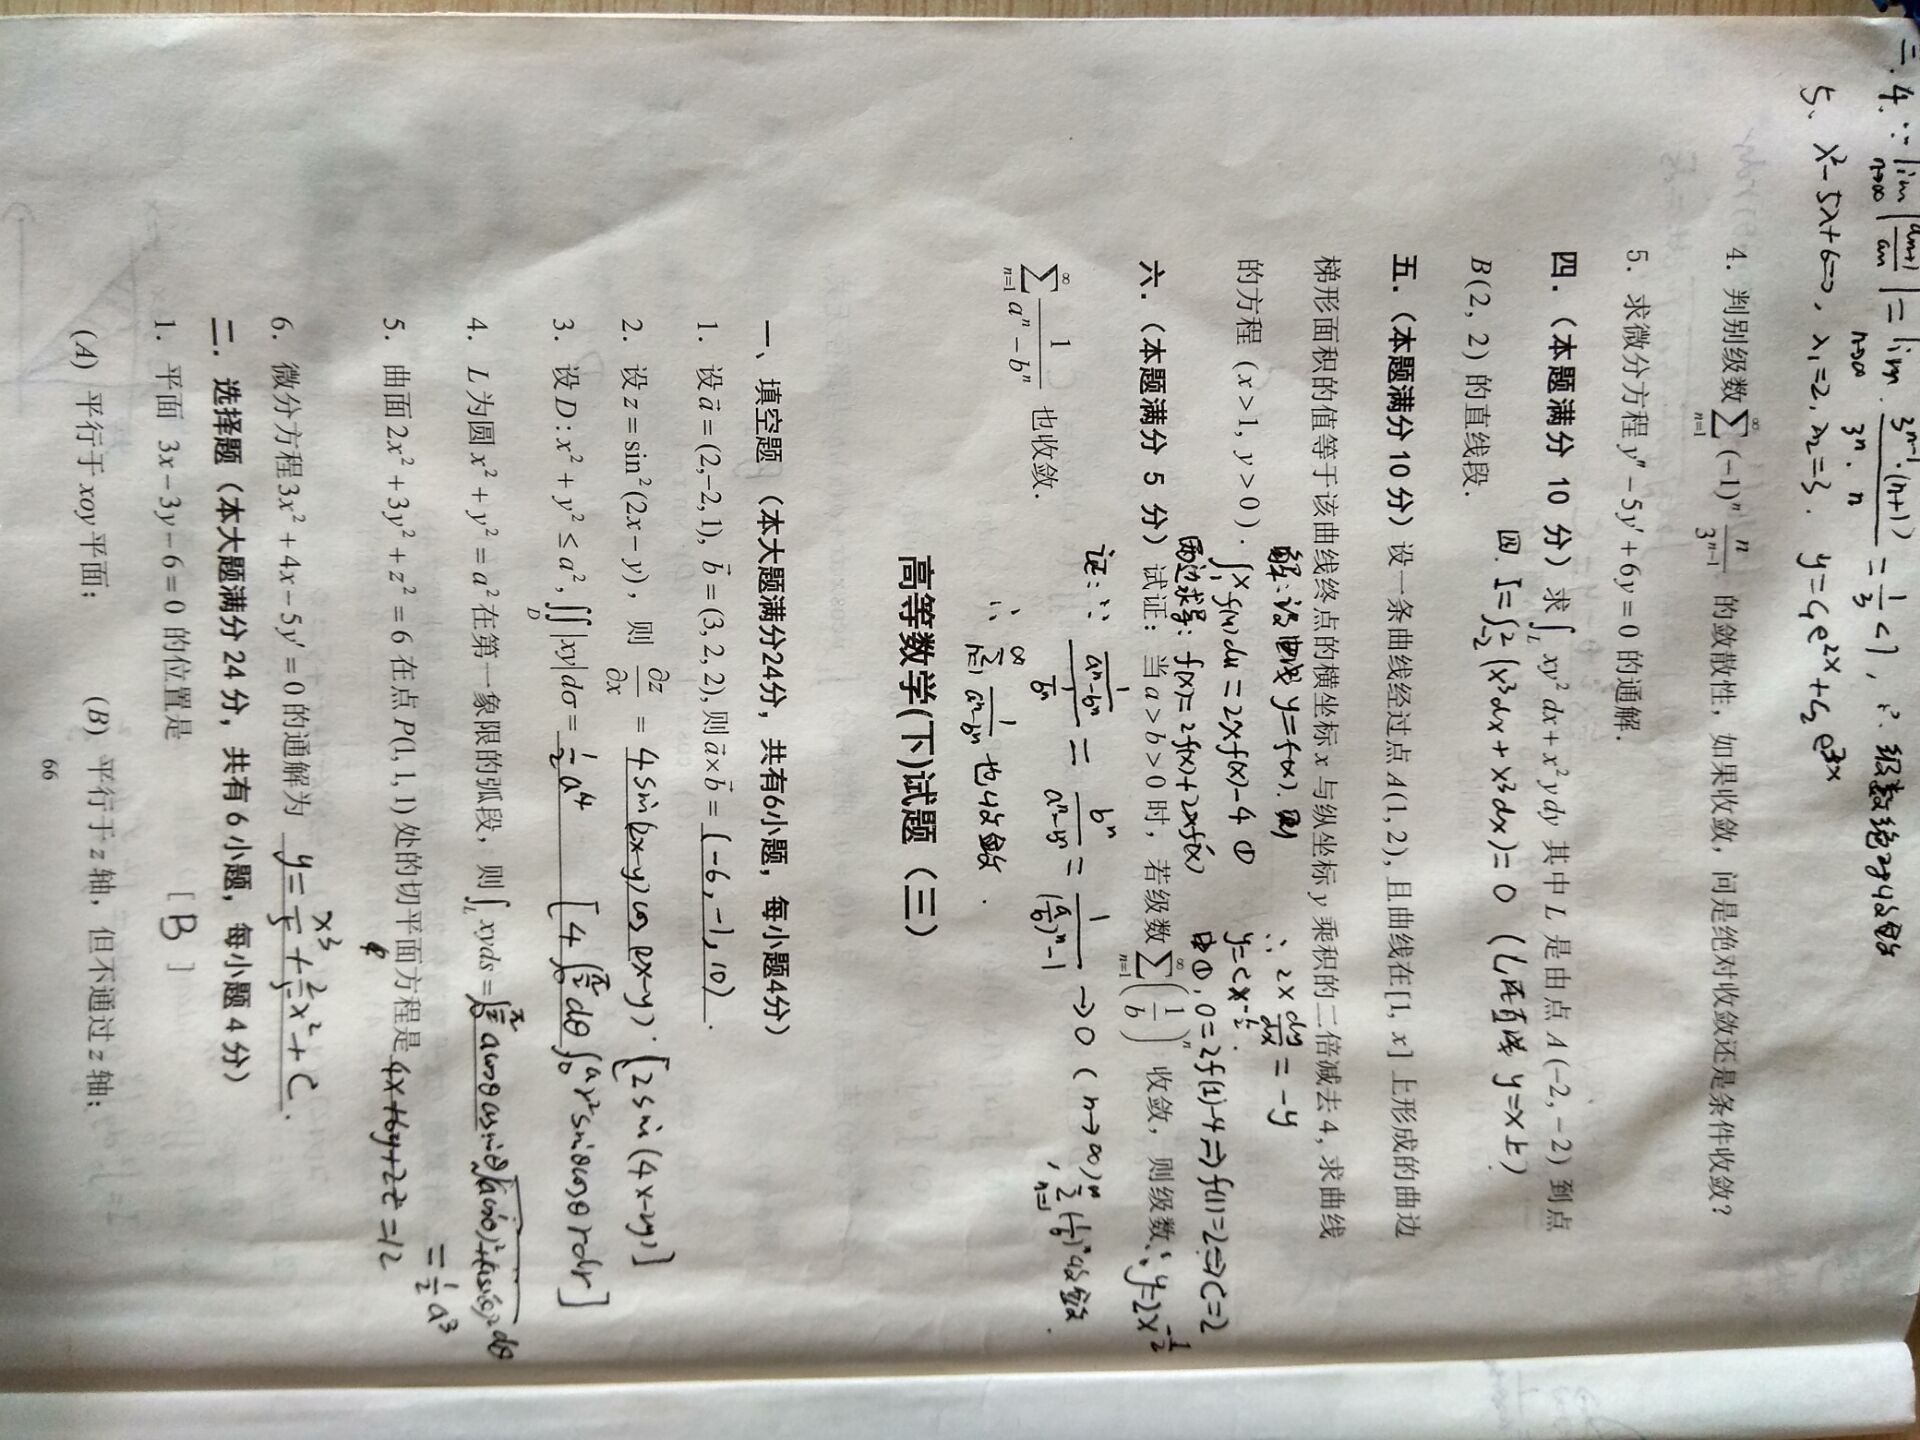 三. 4. ∵ lim_{n→∞} |a_{n+1}/a_n| = lim_{n→∞} 3^{n-1}·(n+1) / 3^n·n = 1/3 < 1, ∴ 级数绝对收敛
5. λ²-5λ+6=0, λ₁=2, λ₂=3. y=C₁e^{2x}+C₂e^{3x}
4. 判别级数 ∑_{n=1}^{∞} (-1)^n n/3^{n-1} 的敛散性,如果收敛,问是绝对收敛还是条件收敛?
5. 求微分方程 y″-5y′+6y=0 的通解.
四.(本题满分 10 分)求 ∫_L xy²dx+x²ydy 其中 L 是由点 A(-2,-2) 到点
B(2, 2) 的直线段.
四. I=∫_{-2}^{2}(x³dx+x³dx)=0 (L在直线 y=x上)
五.(本题满分 10 分)设一条曲线经过点 A(1, 2), 且曲线在[1, x] 上形成的曲边
梯形面积的值等于该曲线终点的横坐标 x 与纵坐标 y 乘积的二倍减去 4, 求曲线
的方程 (x>1, y>0).
解:设曲线 y=f(x). 则
∫_1^x f(u)du=2xf(x)-4 ①
两边求导: f(x)=2f(x)+2xf′(x)
∴ 2x dy/dx = -y
y=Cx^{-1/2}.
由①, 0=2f(1)-4⇒f(1)=2⇒C=2
∴ y=2x^{-1/2}
六.(本题满分 5 分)试证:当 a>b>0 时,若级数 ∑_{n=1}^{∞} (1/b)^n 收敛,则级数
∑_{n=1}^{∞} 1/(a^n-b^n) 也收敛.
证:∵ (1/(a^n-b^n))/(1/b^n) = b^n/(a^n-b^n) = 1/((a/b)^n-1) →0 (n→∞), ∑_{n=1}^{∞} (1/b)^n 收敛.
∴ ∑_{n=1}^{∞} 1/(a^n-b^n) 也收敛.
高等数学(下)试题(三)
一、填空题 (本大题满分24分,共有6小题,每小题4分)
1. 设 a⃗=(2,-2,1), b⃗=(3, 2, 2), 则 a⃗×b⃗= (-6,-1,10).
2. 设 z=sin²(2x-y), 则 ∂z/∂x = 4sin(2x-y)cos(2x-y). [2sin(4x-2y)]
3. 设 D: x²+y²≤a², ∬_D |xy|dσ= 1/2 a⁴ [4∫_0^{π/2}dθ∫_0^a r²sinθcosθ rdr]
4. L 为圆 x²+y²=a² 在第一象限的弧段, 则 ∫_L xyds= ∫_0^{π/2} acosθ asinθ √((acosθ)²+(asinθ)²) dθ
= 1/2 a³
5. 曲面 2x²+3y²+z²=6 在点 P(1, 1, 1) 处的切平面方程是 4x+6y+2z=12
6. 微分方程 3x²+4x-5y′=0 的通解为 y= x³/5 + 2/5 x²+C.
二. 选择题(本大题满分 24 分, 共有 6 小题, 每小题 4 分)
1. 平面 3x-3y-6=0 的位置是 [ B ]
(A) 平行于 xoy 平面; (B) 平行于 z 轴, 但不通过 z 轴;
66